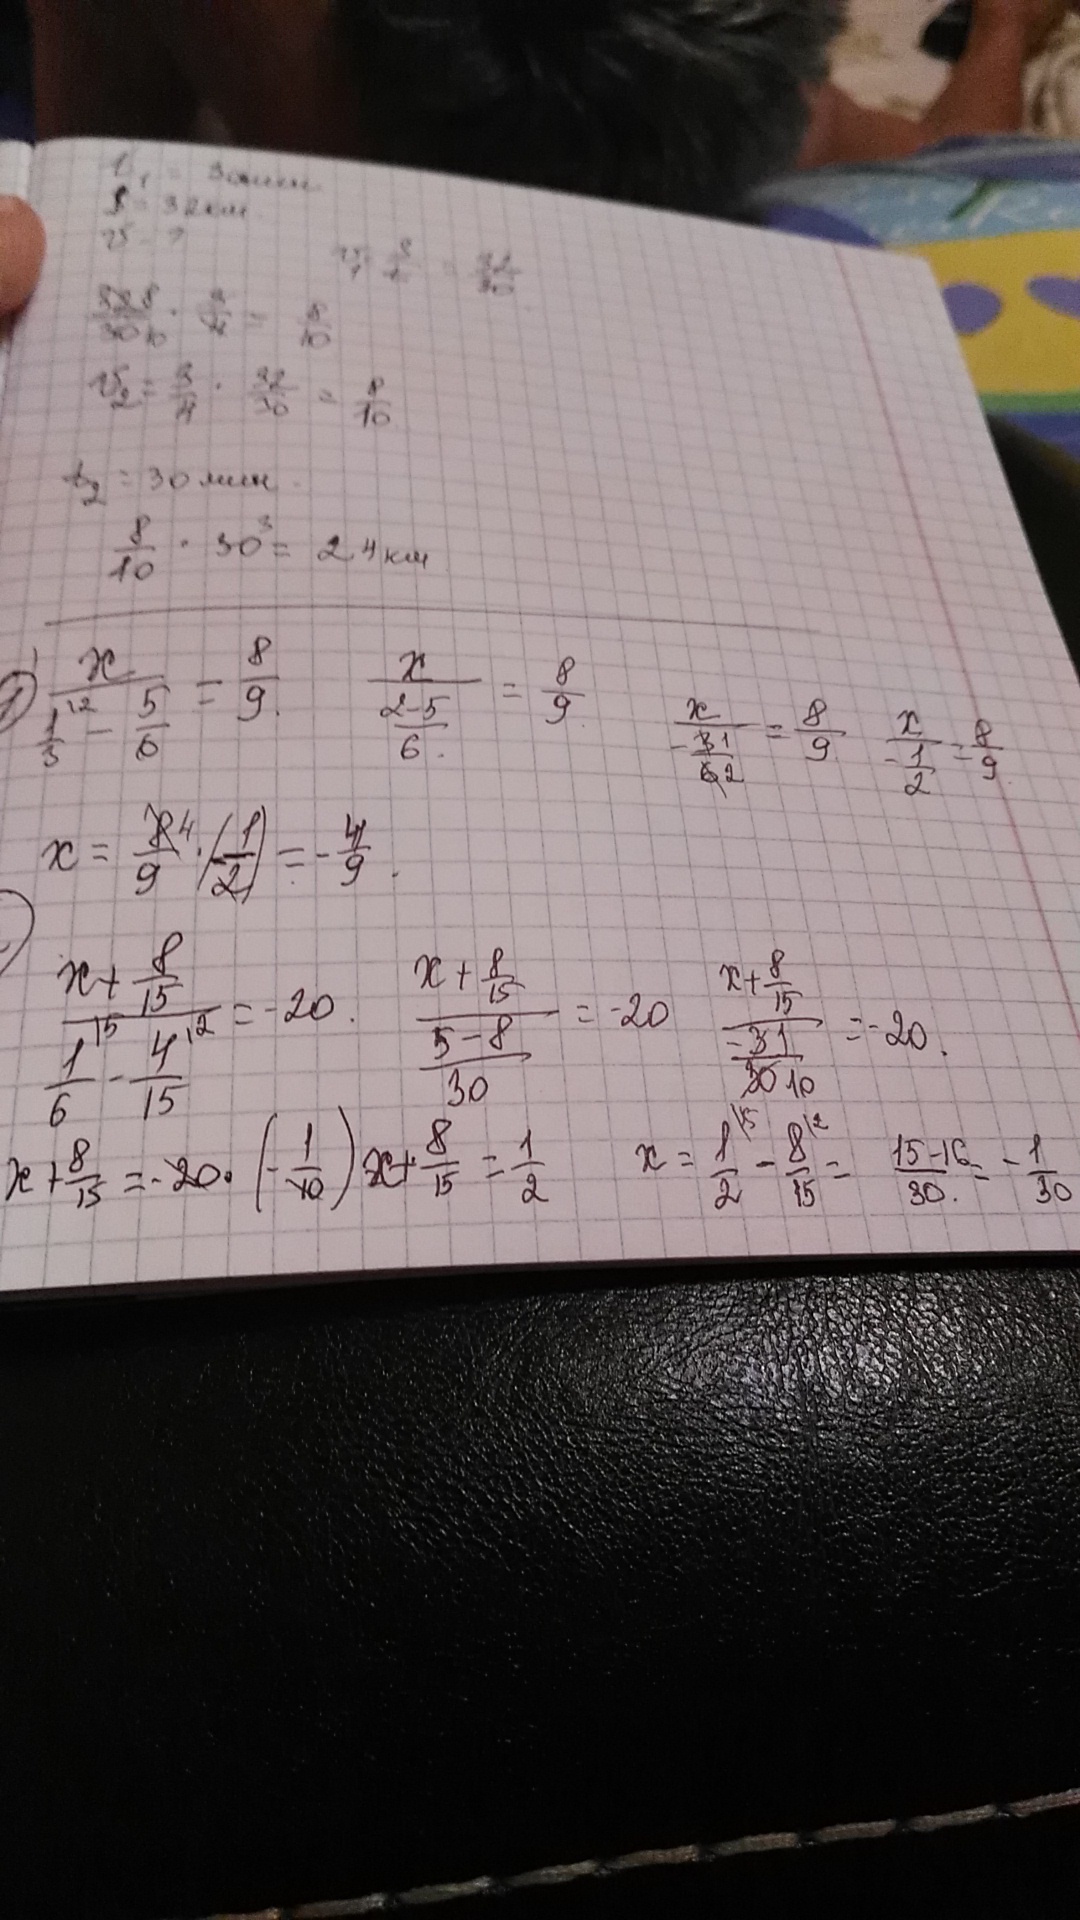 t₁ = 30 мин
S = 32 км
v - ?
v₁ · 3/4 = 32/30
32 8/30 10 · 3/4 = 8/10
v₂ = 3/4 · 32/30 = 8/10
t₂ = 30 мин.
8/10 · 30³ = 24 км
1) x/(1/3\2 - 5/6) = 8/9. x/((2-5)/6.) = 8/9. x/(-31/62) = 8/9 x/(-1/2) = 8/9.
x = 84/9 · (-1/2) = -4/9.
(x + 8/15)/(1/6\5 - 4/15\2) = -20. (x + 8/15)/((5-8)/30) = -20 (x + 8/15)/(-31/3010) = -20.
x + 8/15 = -20 · (-1/10) x + 8/15 = 1/2 x = 1/2\15 - 8/15\2 = (15-16)/30. = -1/30